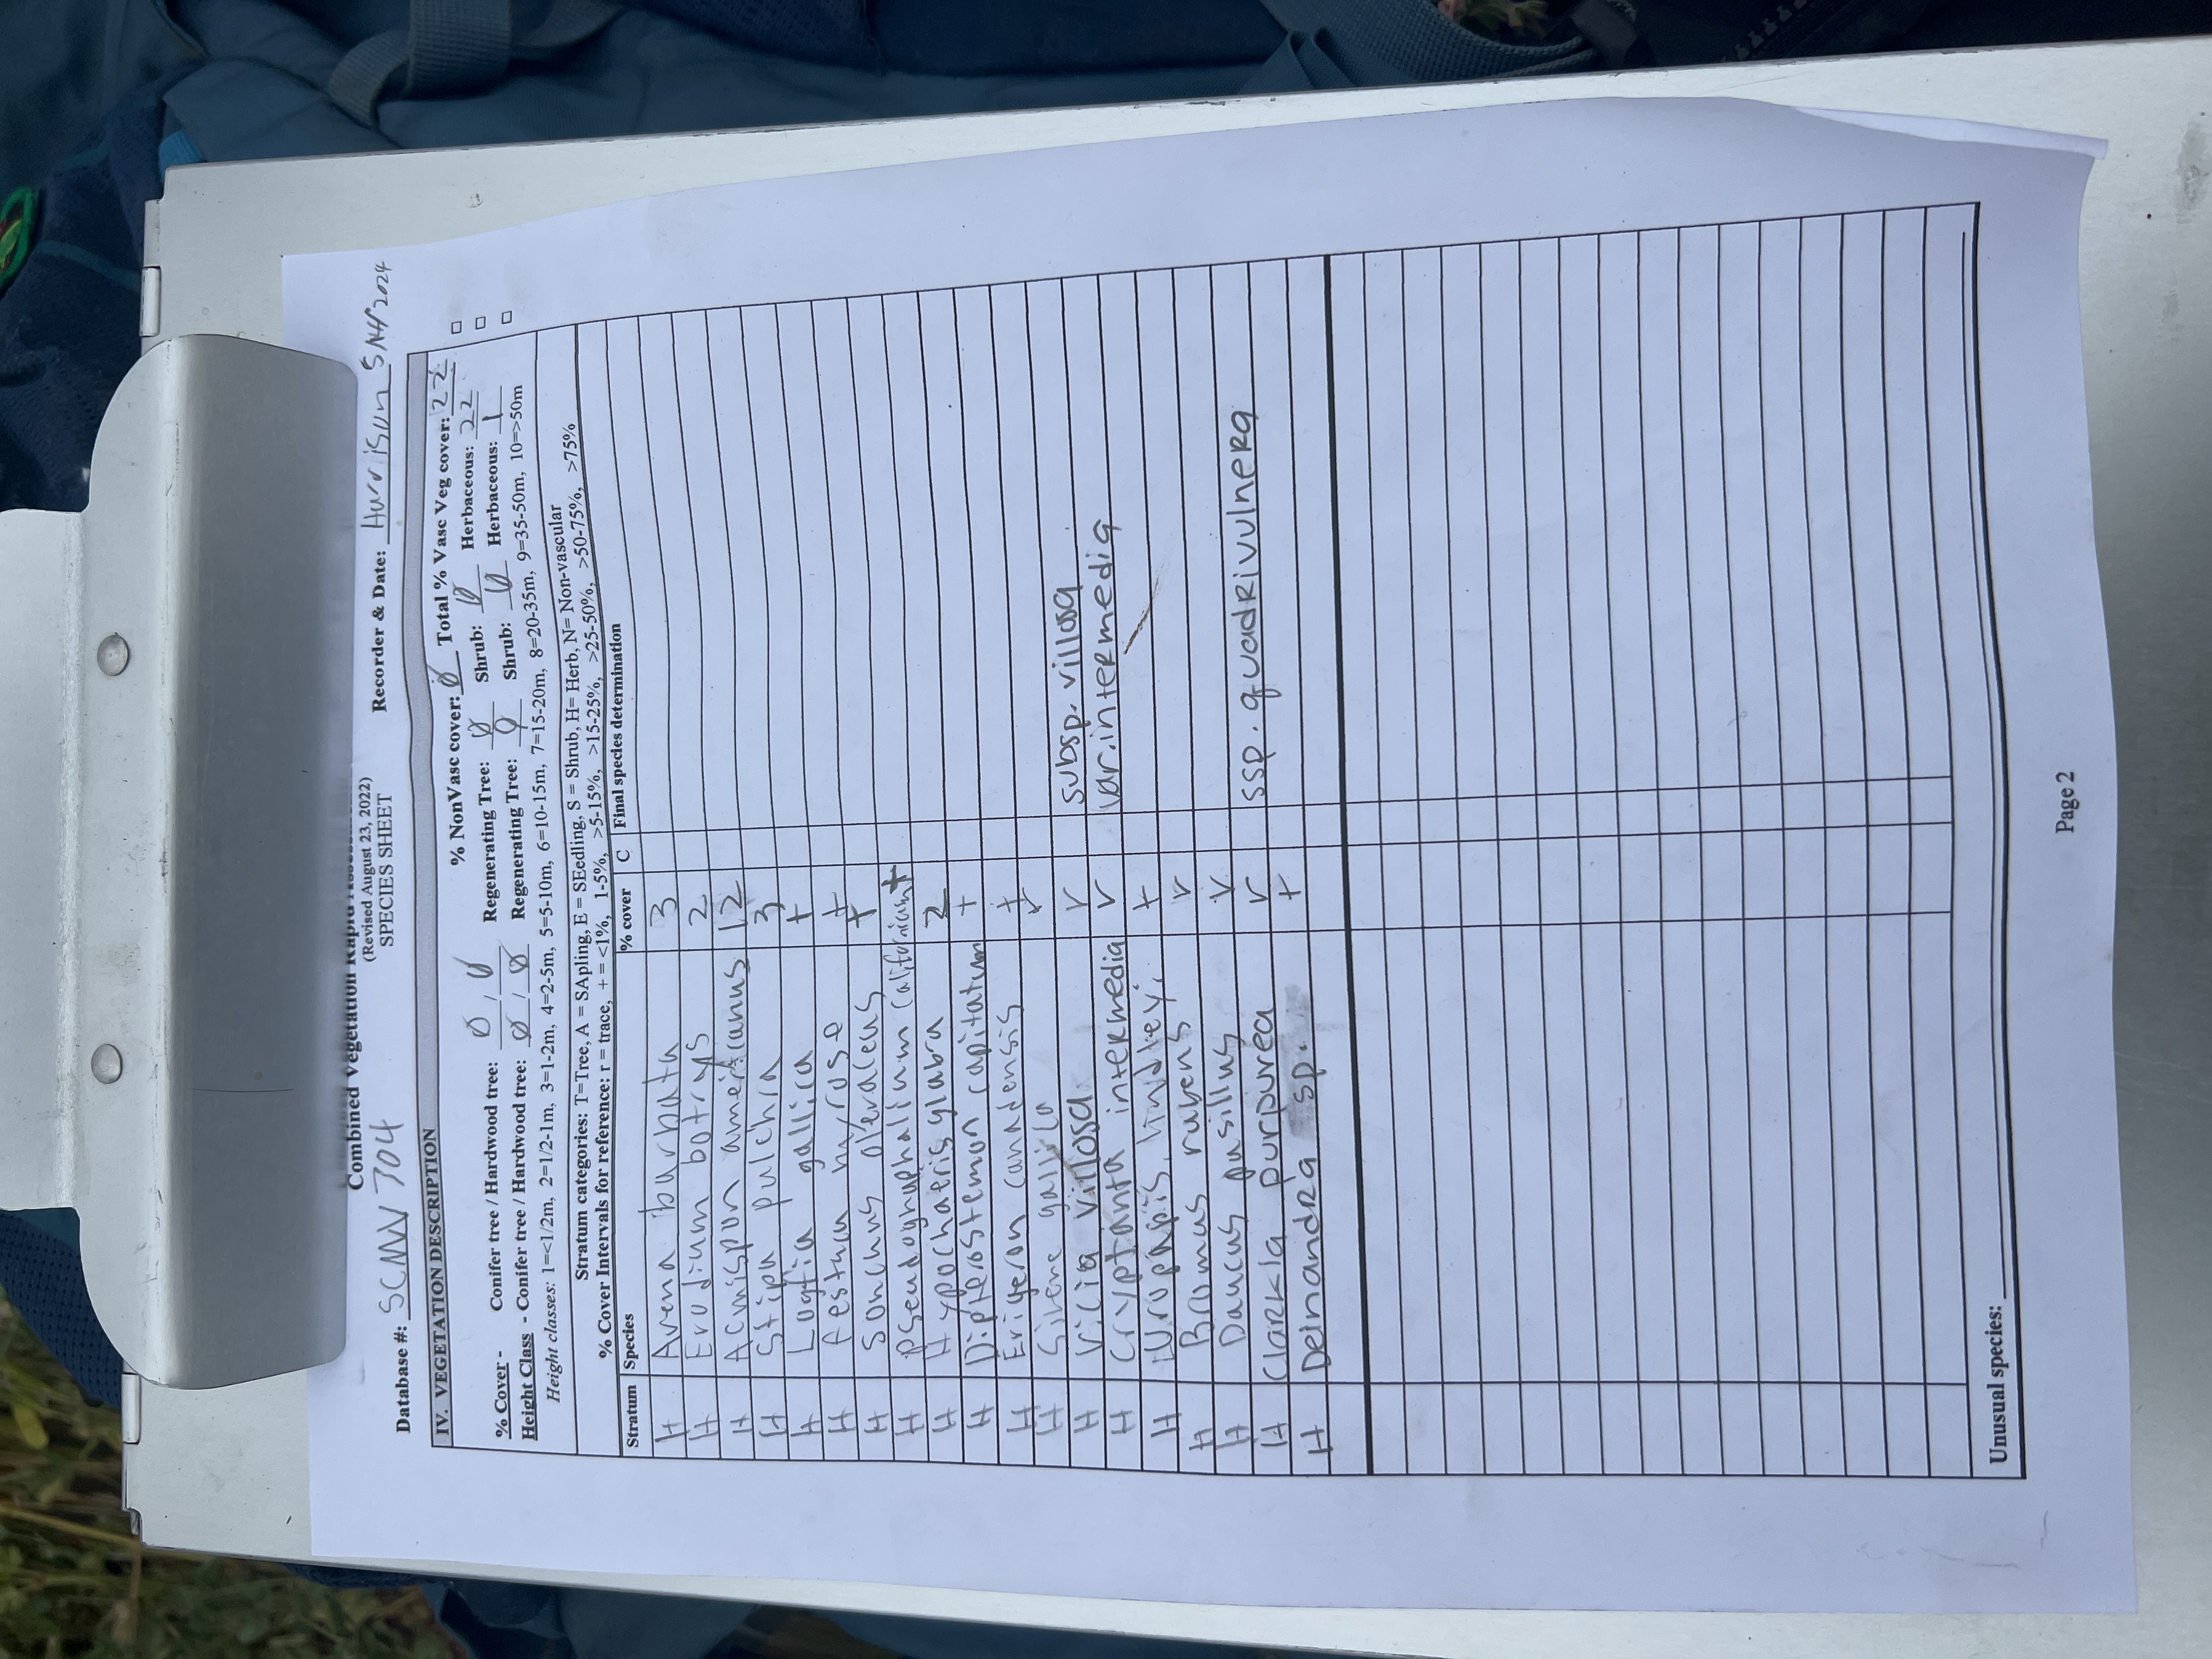 Combined Vegetation Rapid Assessm
(Revised August 23, 2022)
SPECIES SHEET
Database #: SCMN 704 Recorder & Date: Harrison 5/14/2024
IV. VEGETATION DESCRIPTION
% NonVasc cover: Ø Total % Vasc Veg cover: 22
% Cover - Conifer tree / Hardwood tree: Ø / Ø Regenerating Tree: Ø Shrub: Ø Herbaceous: 22
Height Class - Conifer tree / Hardwood tree: Ø / Ø Regenerating Tree: Ø Shrub: Ø Herbaceous: 1
Height classes: 1=<1/2m, 2=1/2-1m, 3=1-2m, 4=2-5m, 5=5-10m, 6=10-15m, 7=15-20m, 8=20-35m, 9=35-50m, 10=>50m
Stratum categories: T=Tree, A = SApling, E = SEedling, S = Shrub, H= Herb, N= Non-vascular
% Cover Intervals for reference: r = trace, + = <1%, 1-5%, >5-15%, >15-25%, >25-50%, >50-75%, >75%
Stratum Species % cover C Final species determination
H Avena barbata 3
H Erodium botrys 2
H Acmispon americanus 12
H Stipa pulchra 3
H Logfia gallica +
H Festuca myros +
H Sonchus oleraceus +
H Pseudognaphalium californicum +
H Hypochaeris glabra 2
H Dipterostemon capitatum +
H Erigeron canadensis +
H Silene gallica r
H Vicia villosa r subsp. villosa
H Cryptantha intermedia r var. intermedia
H Uropappis lindleyi +
H Bromus rubens r
H Daucus pusillus r
H Clarkia purpurea r ssp. quadrivulnera
H Deinandra sp. +
Unusual species:
Page 2